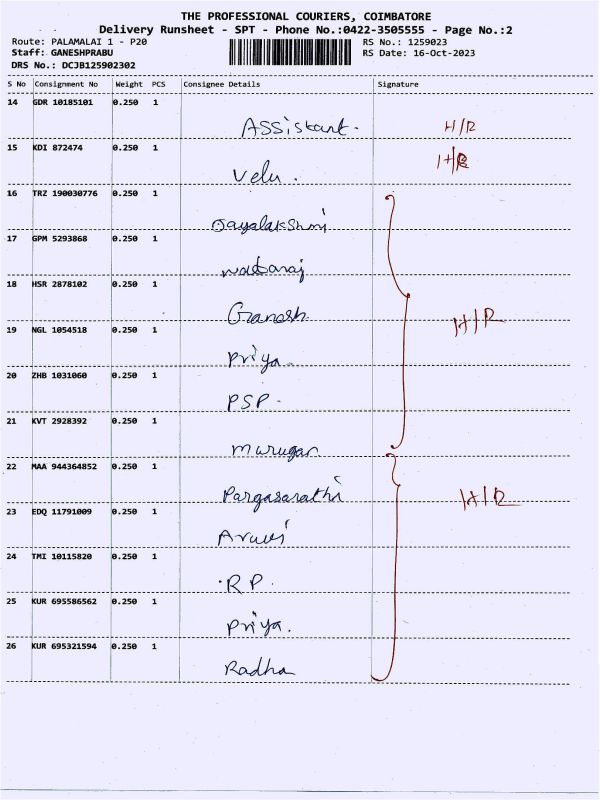 THE PROFESSIONAL COURIERS, COIMBATORE
Delivery Runsheet - SPT - Phone No.:0422-3505555 - Page No.:2
Route: PALAMALAI 1 - P20 RS No.: 1259023
Staff: GANESHPRABU RS Date: 16-Oct-2023
DRS No.: DCJB125902302
S No Consignment No Weight PCS Consignee Details Signature
14 GDR 10185101 0.250 1
Assistant. H/R
15 KDI 872474 0.250 1
Velu. H/R
16 TRZ 190030776 0.250 1
Jayalakshmi
17 GPM 5293868 0.250 1
18 HSR 2878102 0.250 1
Ganesh H/R
19 NGL 1054518 0.250 1
Priya.
20 ZHB 1031060 0.250 1
PSP.
21 KVT 2928392 0.250 1
Murugan
22 MAA 944364852 0.250 1
Pargasarathi H/R
23 EDQ 11791009 0.250 1
24 TMI 10115820 0.250 1
RP.
25 KUR 695586562 0.250 1
Priya.
26 KUR 695321594 0.250 1
Radha